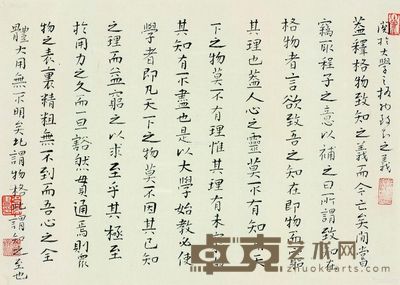 關於大學之格物致知之義
蓋釋格物致知之義而今亡矣間嘗
竊取程子之意以補之曰所謂致知在
格物者言欲致吾之知在即物而窮
其理也蓋人心之靈莫不有知而天
下之物莫不有理惟其理有未
其知有不盡也是以大學始教必使
學者即凡天下之物莫不因其已知
之理而益窮之以求至乎其極至
於用力之久而一旦豁然貫通焉則眾
物之表裏精粗無不到而吾心之全
體大用無不明矣此謂物格此謂知之至也
卓克艺术网
zhuokearts.com